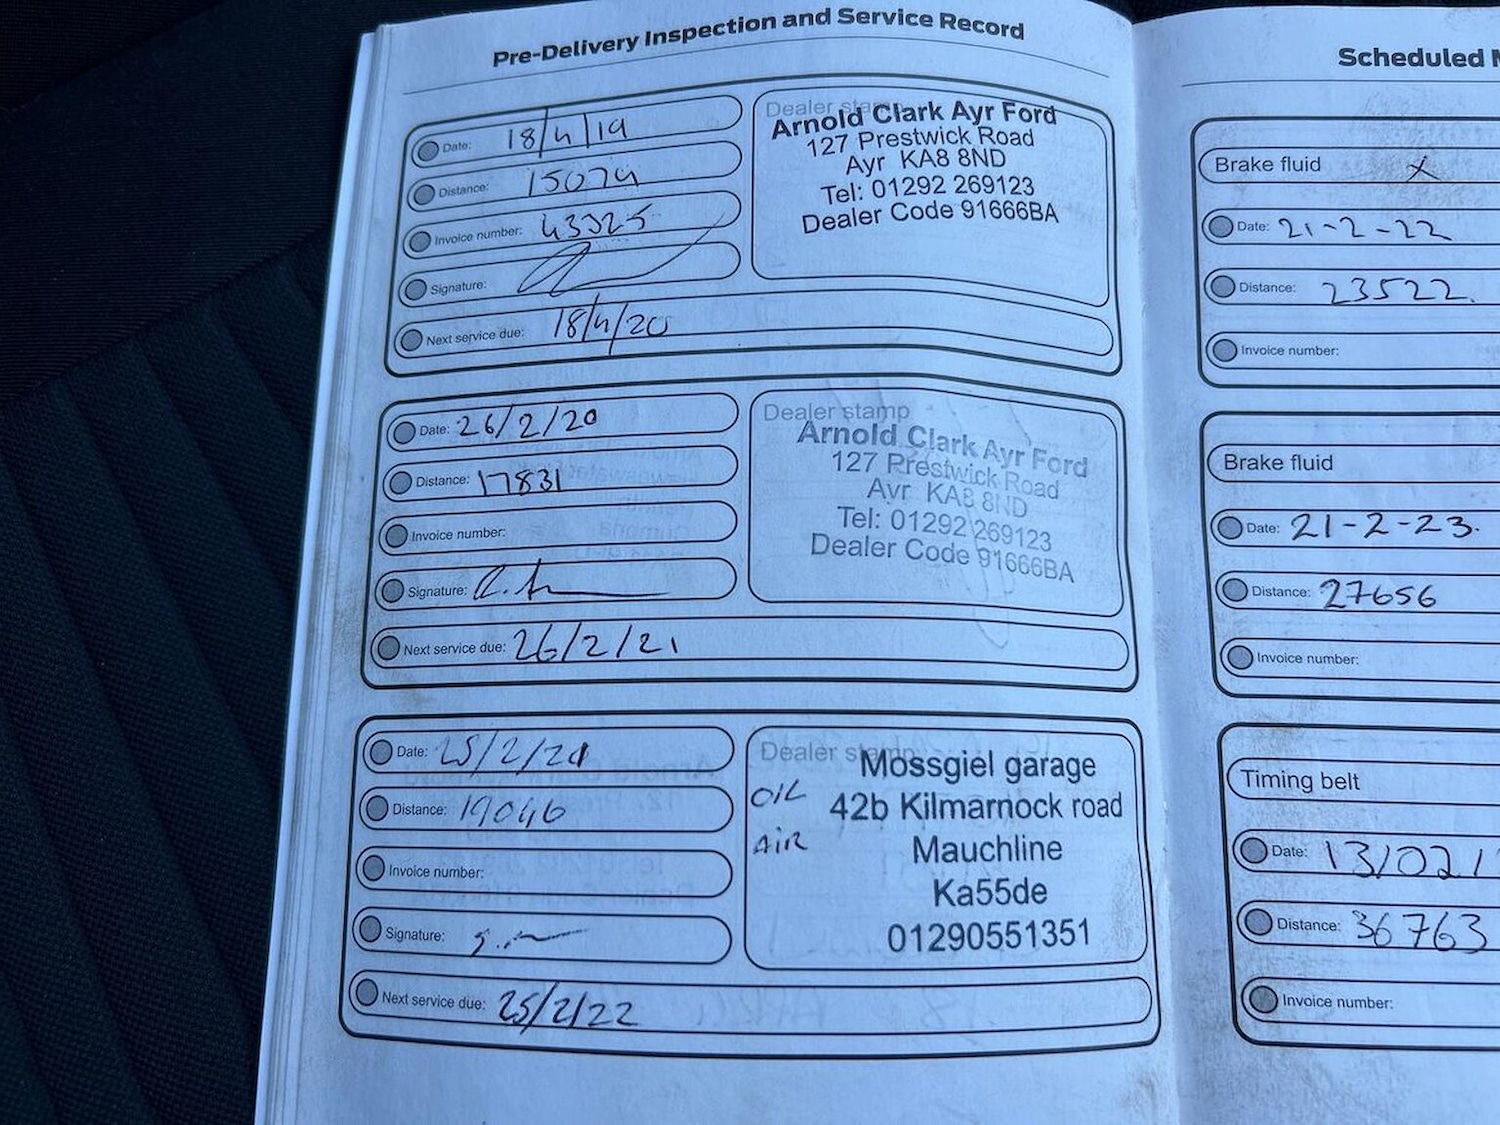 Pre-Delivery Inspection and Service Record
Date: 18/4/19
Distance: 15079
Invoice number: 43325
Signature:
Next service due: 18/4/20
Dealer stamp
Arnold Clark Ayr Ford
127 Prestwick Road
Ayr KA8 8ND
Tel: 01292 269123
Dealer Code 91666BA
Date: 26/2/20
Distance: 17831
Invoice number:
Signature:
Next service due: 26/2/21
Dealer stamp
Arnold Clark Ayr Ford
127 Prestwick Road
Ayr KA8 8ND
Tel: 01292 269123
Dealer Code 91666BA
Date: 25/2/21
Distance: 19046
Invoice number:
Signature:
Next service due: 25/2/22
Dealer stamp
OIL
AIR
Mossgiel garage
42b Kilmarnock road
Mauchline
Ka55de
01290551351
Scheduled
Brake fluid X
Date: 21-2-22
Distance: 23522.
Invoice number:
Brake fluid
Date: 21-2-23.
Distance: 27656
Invoice number:
Timing belt
Date: 13/02/
Distance: 36763
Invoice number: